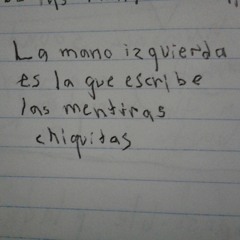 La mano izquierda
es la que escribe
las mentiras
chiquitas